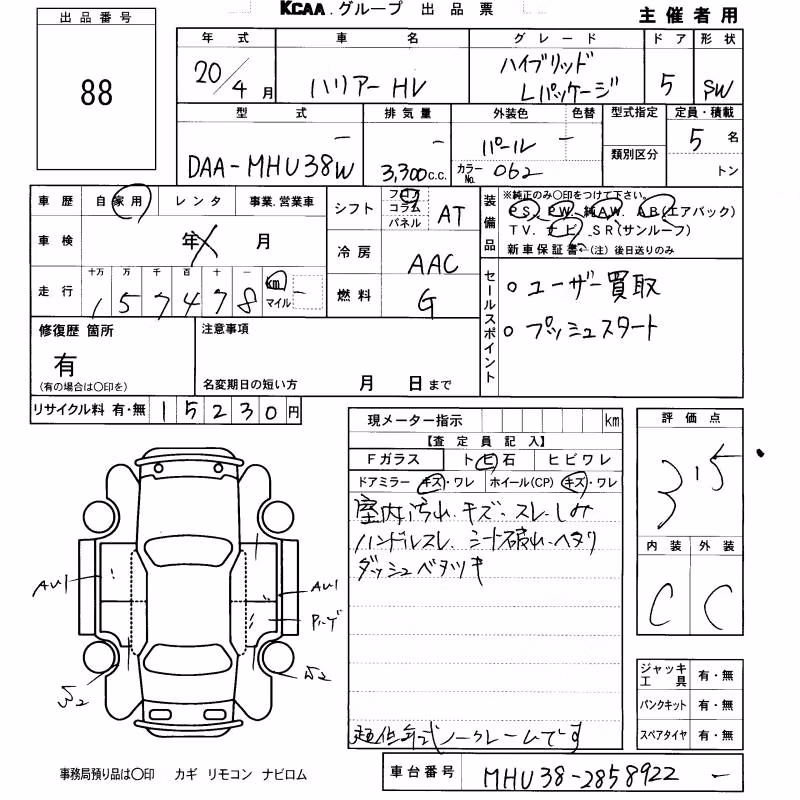 KCAA.グループ 出品票
主催者用
出品番号
88
年式 車名 グレード ドア 形状
20/4月 ハリアー HV ハイブリッド Lパッケージ 5 SW
型式 排気量 外装色 色替 型式指定 定員・積載
DAA-MHU38W 3,300c.c. パール 類別区分 5名
カラーNo. 062 トン
車歴 自家用 レンタ 事業.営業車
車検 年 月
走行 十万 万 千 百 十 一
1 5 7 4 7 8 km マイル
シフト フロア コラム パネル AT
冷房 AAC
燃料 G
装備品 ※純正のみ○印をつけて下さい。
PS. PW. 純AW. AB(エアバック)
TV. ナビ. SR(サンルーフ)
新車保証書←(注)後日送りのみ
セールスポイント
○ユーザー買取
○プッシュスタート
修復歴 箇所
有
(有の場合は○印を)
注意事項
名変期日の短い方 月 日まで
リサイクル料 有・無 15230円
現メーター指示 km
【査定員記入】
Fガラス トビ石 ヒビワレ
ドアミラー キズ・ワレ ホイール(CP) キズ・ワレ
室内汚れ.キズ.スレ.しみ
ハンドルスレ. シート破れ.ヘタリ
ダッシュベタツキ
超低年式ノークレームです
評価点
3.5
内装 外装
C C
AU1
AU1
ジャッキ工具 有・無
パンクキット 有・無
スペアタイヤ 有・無
事務局預り品は○印 カギ リモコン ナビロム
車台番号 MHU38-2858922